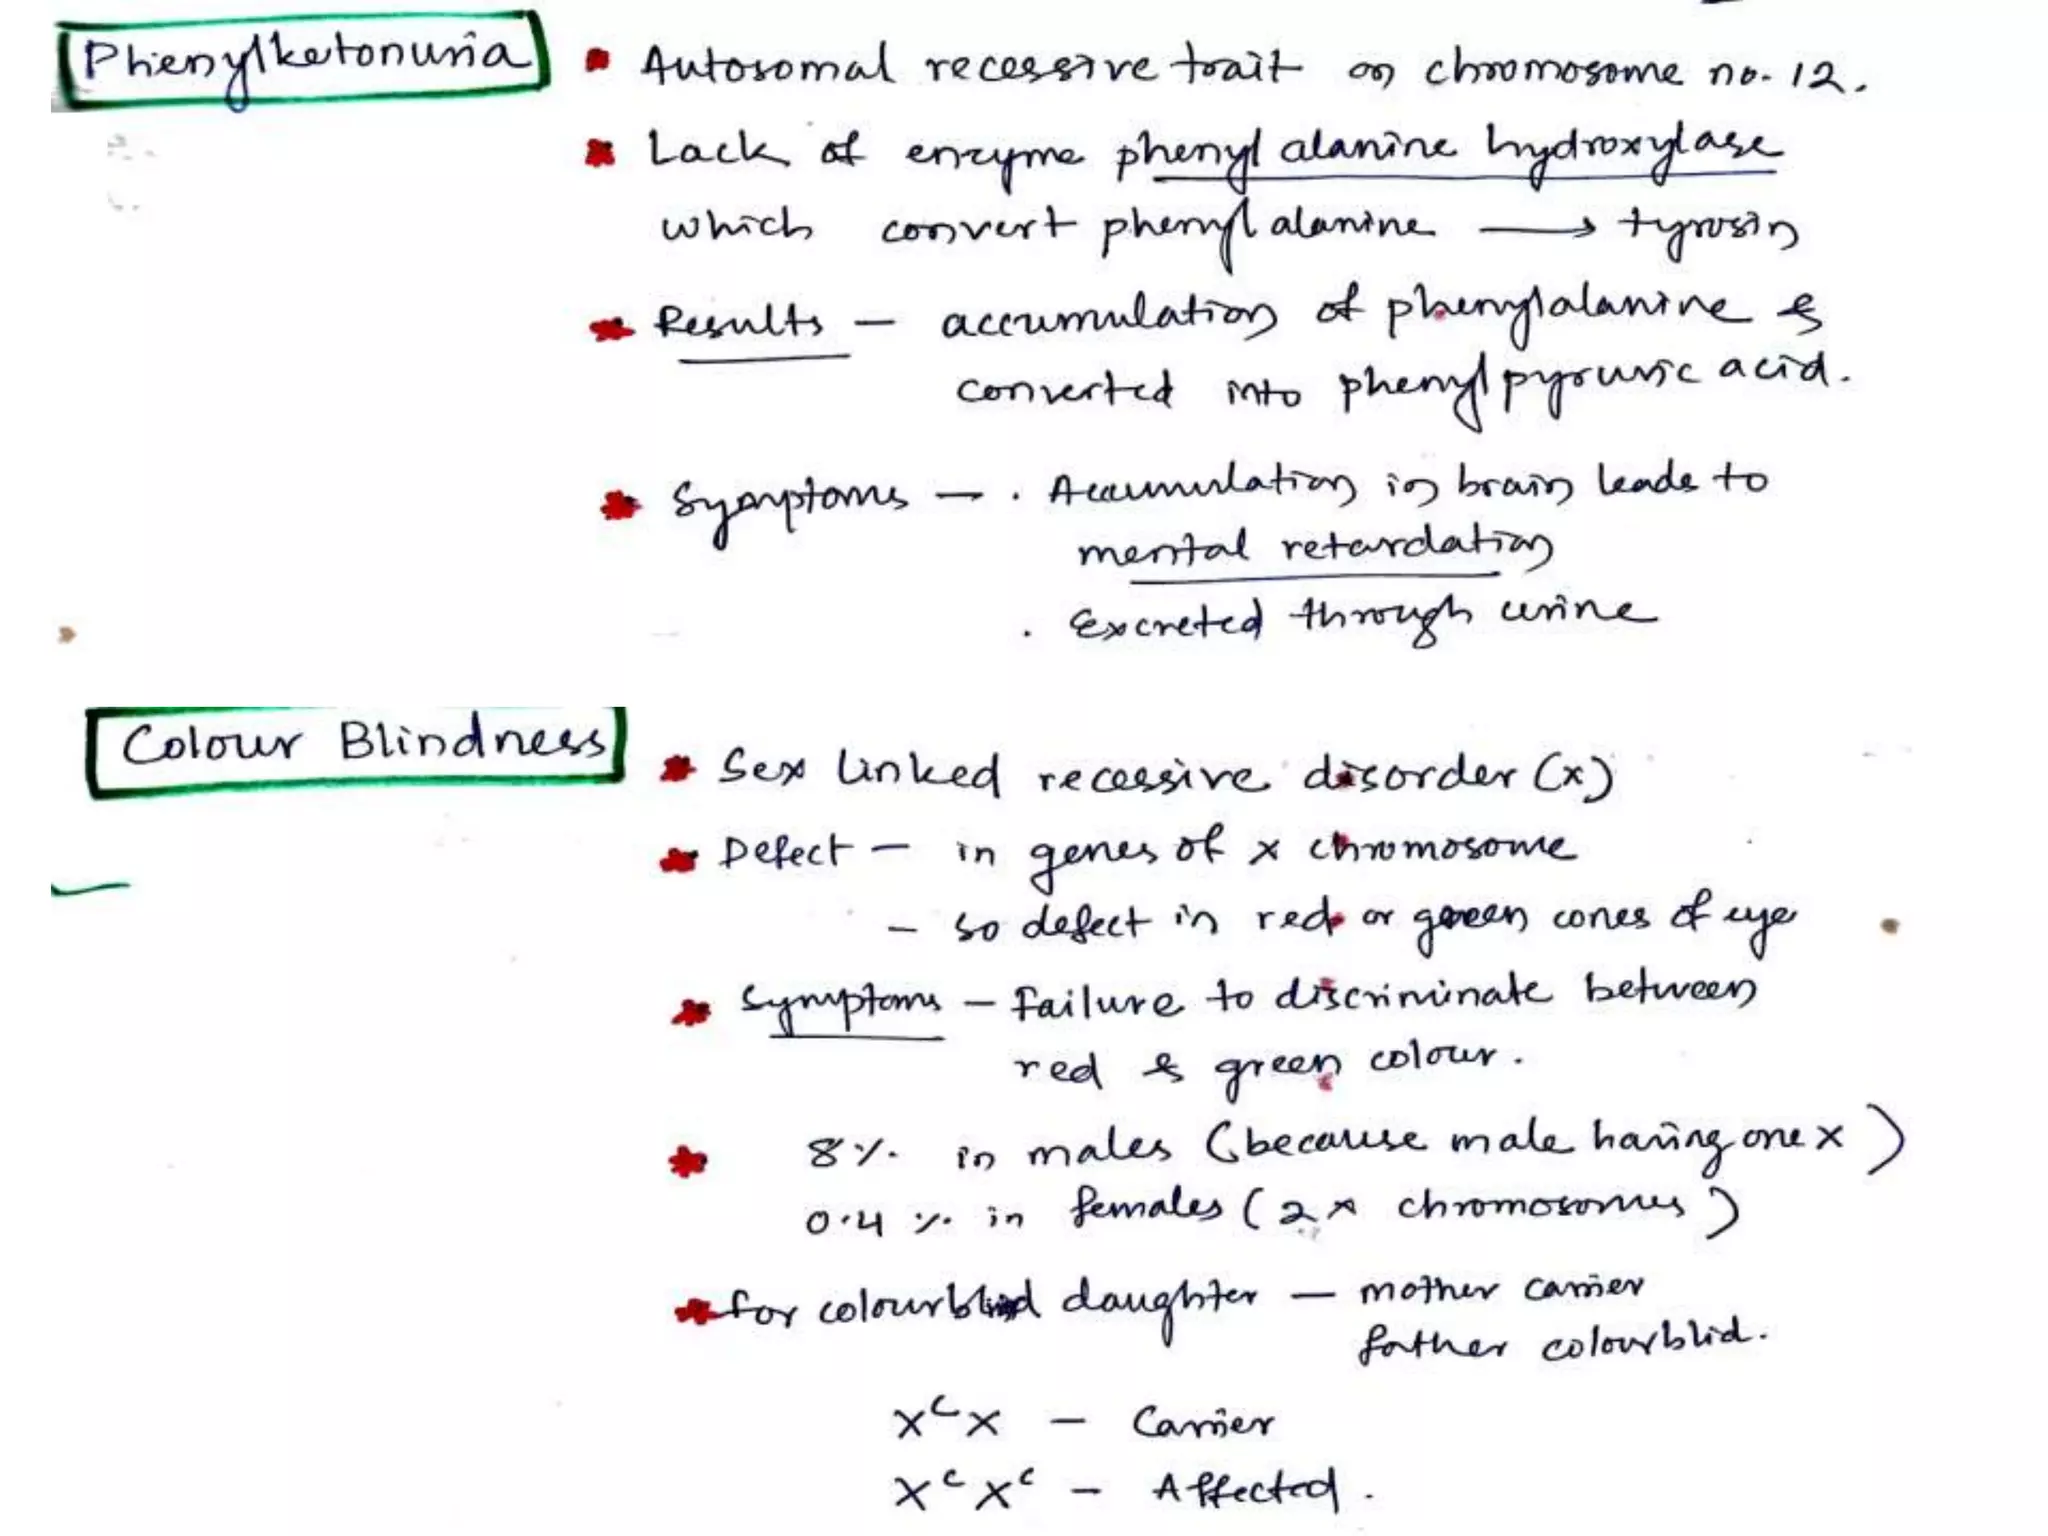 Phenylketonuria
Autosomal recessive trait on chromosome no. 12.
Lack of enzyme phenyl alanine hydroxylase
which convert phenyl alanine → tyrosin
Results – accumulation of phenylalanine &
converted into phenylpyruvic acid.
Symptoms – . Accumulation in brain leads to
mental retardation
. Excreted through urine
Colour Blindness
Sex linked recessive disorder (x)
Defect – in genes of x chromosome
– so defect in red or green cones of eye
Symptoms – Failure to discriminate between
red & green colour.
8% in males (because male having one x)
0.4% in females (2x chromosomes)
for colourblind daughter – mother carrier
father colourblid.
XᶜX – Carrier
XᶜXᶜ – Affected.